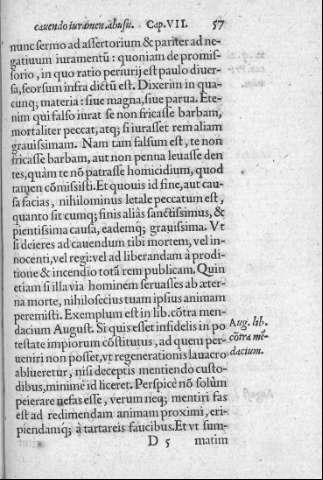 cauendo iuramen. abusu. Cap. VII. 57
nunc sermo ad assertorium & pariter ad ne-
gatiuum iuramentũ: quoniam de promis-
sorio, in quo ratio periurij est paulo diuer-
sa, seorsum infra dictũ est. Dixerim in qua-
cunq; materia: siue magna, siue parua. Ete-
nim qui falso iurat se non fricasse barbam,
mortaliter peccat, atq; si iurasset rem aliam
grauissimam. Nam tam falsum est, te non
fricasse barbam, aut non penna leuasse den
tes, quàm te nõ patrasse homicidium, quod
tamen cõmisisti. Et quouis id fine, aut cau-
sa facias, nihilominus letale peccatum est,
quanto sit cumq; finis aliàs sanctissimus, &
pientissima causa, eademq; grauissima. Vt
si deieres ad cauendum tibi mortem, vel in-
nocenti, vel regi: vel ad liberandam à prodi-
tione & incendio totã rem publicam. Quin
etiam si illa via hominem seruasses ab æter-
na morte, nihilo secius tuam ipsius animam
peremisti. Exemplum est in lib. cõtra men-
dacium August. Si quis esset infidelis in po
testate impiorum cõstitutus, ad quem per-
ueniri non posset, vt regenerationis lauacro
ablueretur, nisi deceptis mentiendo custo-
dibus, minimè id liceret. Perspicè nõ solùm
peierare nefas esse, verum neq; mentiri fas
est ad redimendam animam proximi, eri-
piendamq; à tartareis faucibus. Et vt sum-
D 5 matim
Aug. lib.
cõtra mẽ-
dacium.